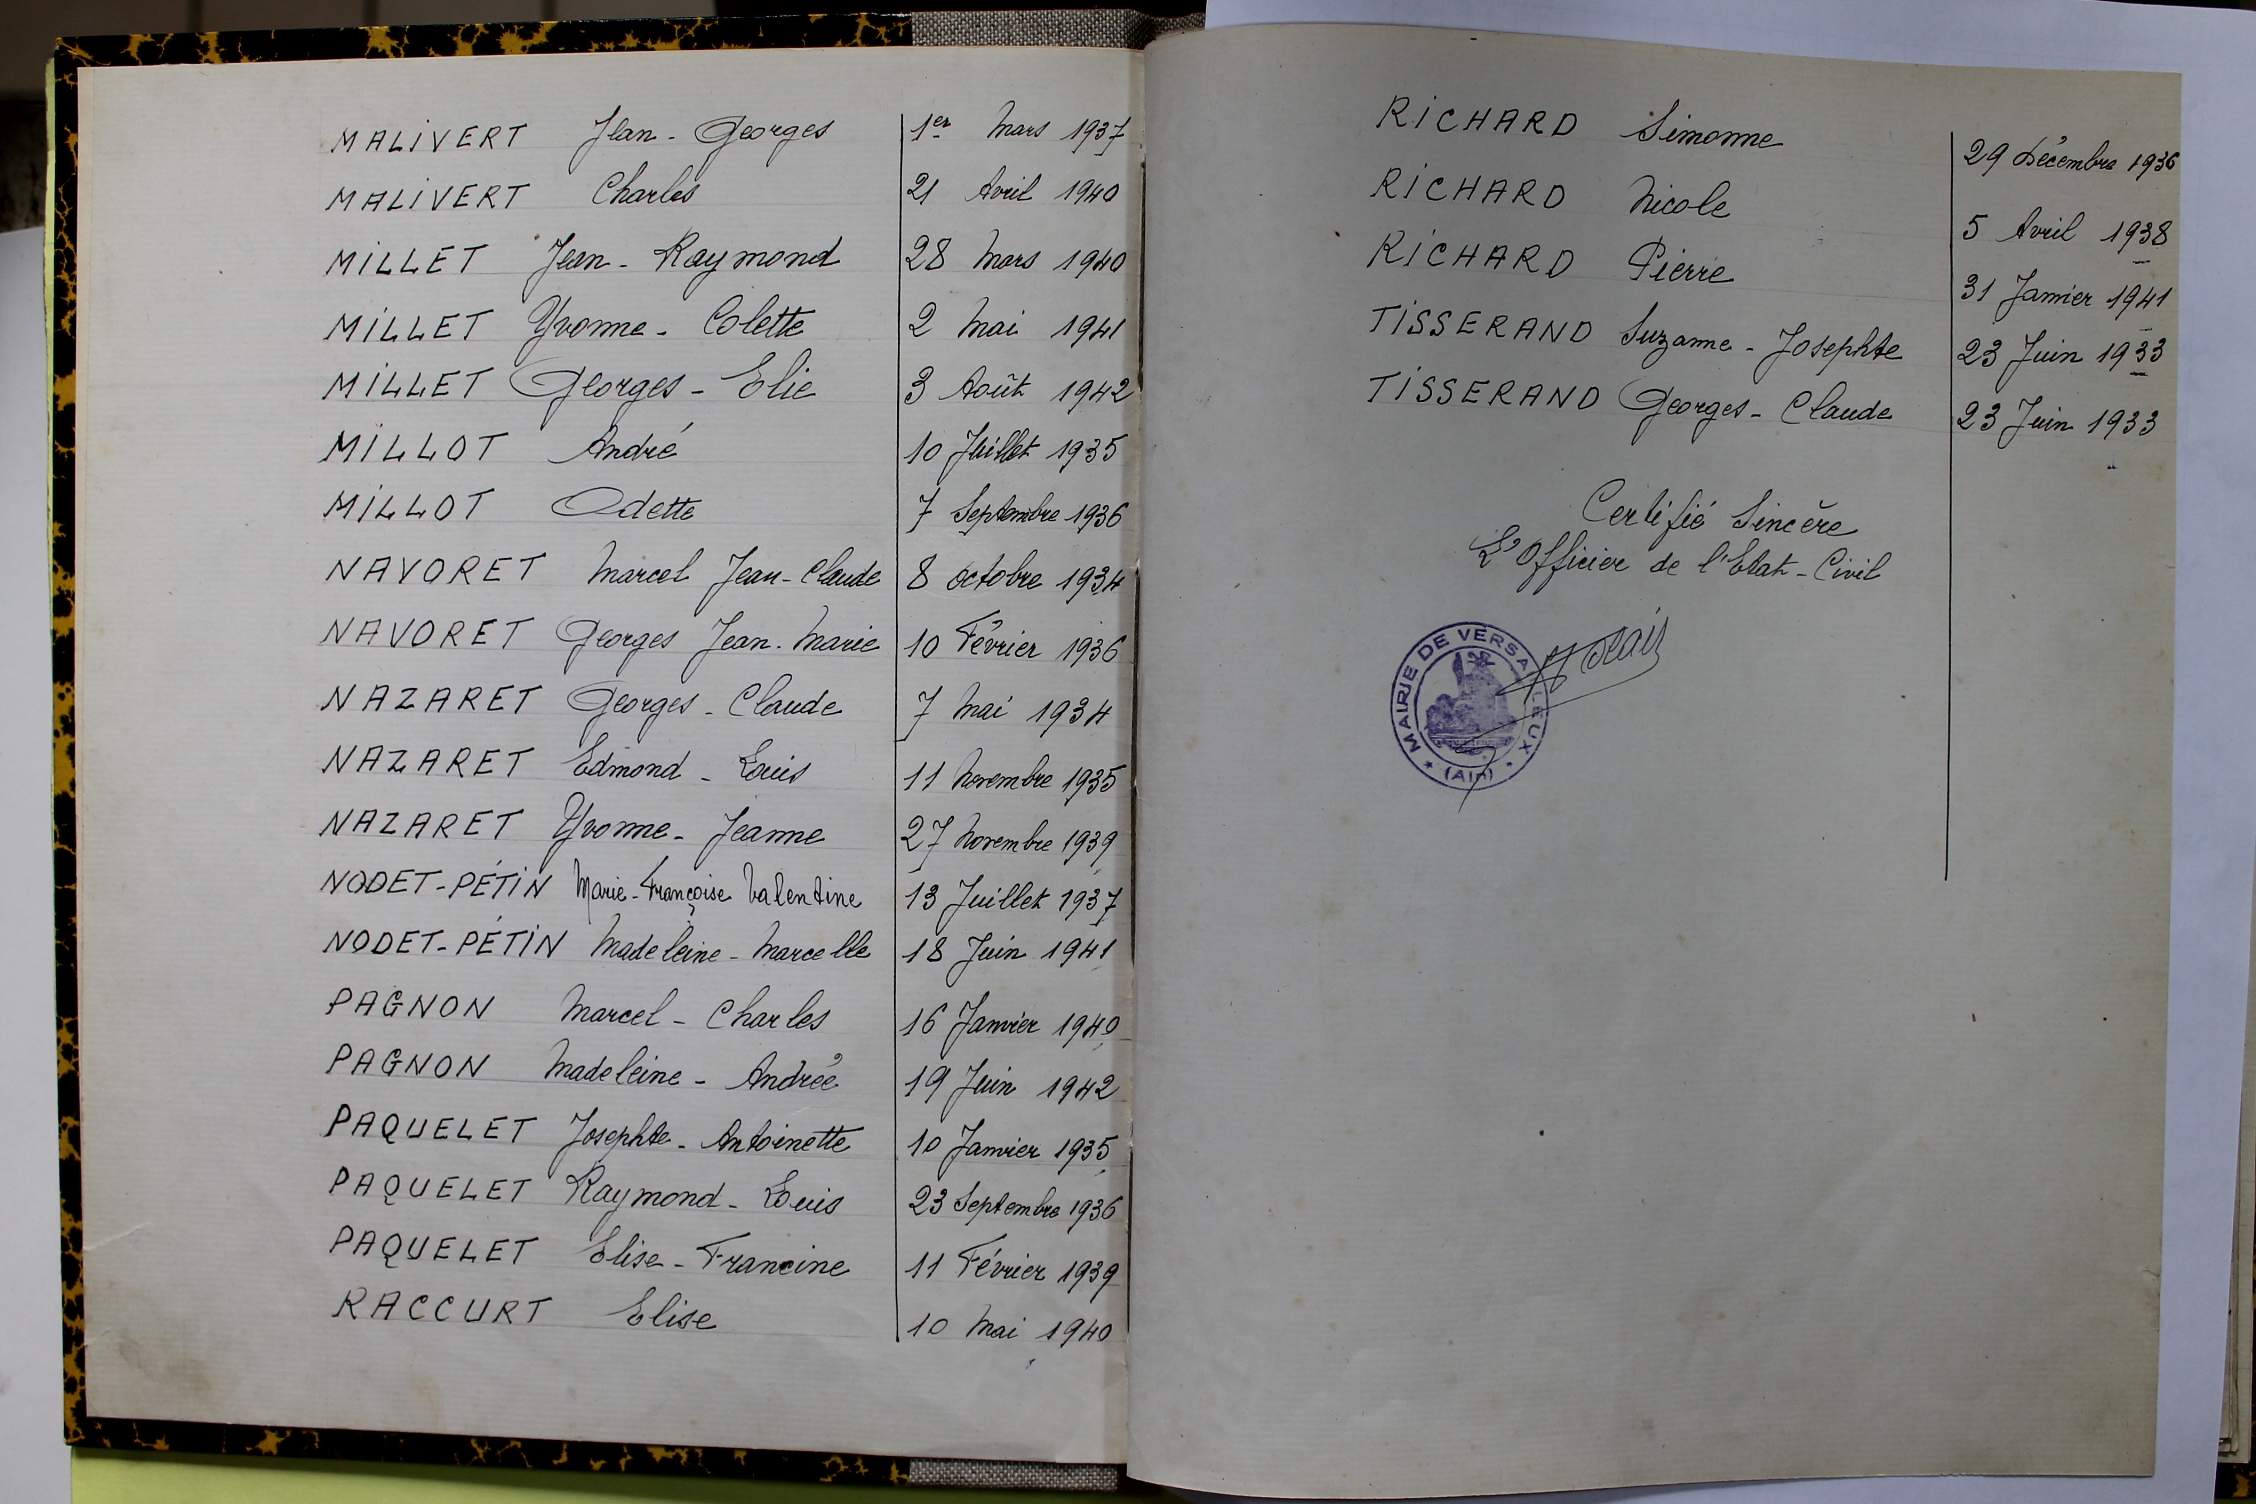 MALIVERT Jean - Georges 1er Mars 1937
MALIVERT Charles 21 Avril 1940
MILLET Jean - Raymond 28 Mars 1940
MILLET Yvonne - Colette 2 Mai 1941
MILLET Georges - Elie 3 Août 1942
MILLOT André 10 Juillet 1935
MILLOT Odette 7 Septembre 1936
NAVORET Marcel Jean - Claude 8 Octobre 1934
NAVORET Georges Jean - Marie 10 Février 1936
NAZARET Georges - Claude 7 Mai 1934
NAZARET Edmond - Louis 11 Novembre 1935
NAZARET Yvonne - Jeanne 27 Novembre 1939
NODET-PÉTIN Marie-Françoise Valentine 13 Juillet 1937
NODET-PÉTIN Madeleine - Marcelle 18 Juin 1941
PAGNON Marcel - Charles 16 Janvier 1940
PAGNON Madeleine - Andrée 19 Juin 1942
PAQUELET Josephte - Antoinette 10 Janvier 1935
PAQUELET Raymond - Louis 23 Septembre 1936
PAQUELET Elise - Francine 11 Février 1939
RACCURT Elise 10 Mai 1940
RICHARD Simonne 29 Décembre 1936
RICHARD Nicole 5 Avril 1938
RICHARD Pierre 31 Janvier 1941
TISSERAND Suzanne - Josephte 23 Juin 1933
TISSERAND Georges - Claude 23 Juin 1933
Certifié Sincère
L'Officier de l'Etat - Civil
MAIRIE DE VERSAILLEUX
(Ain)